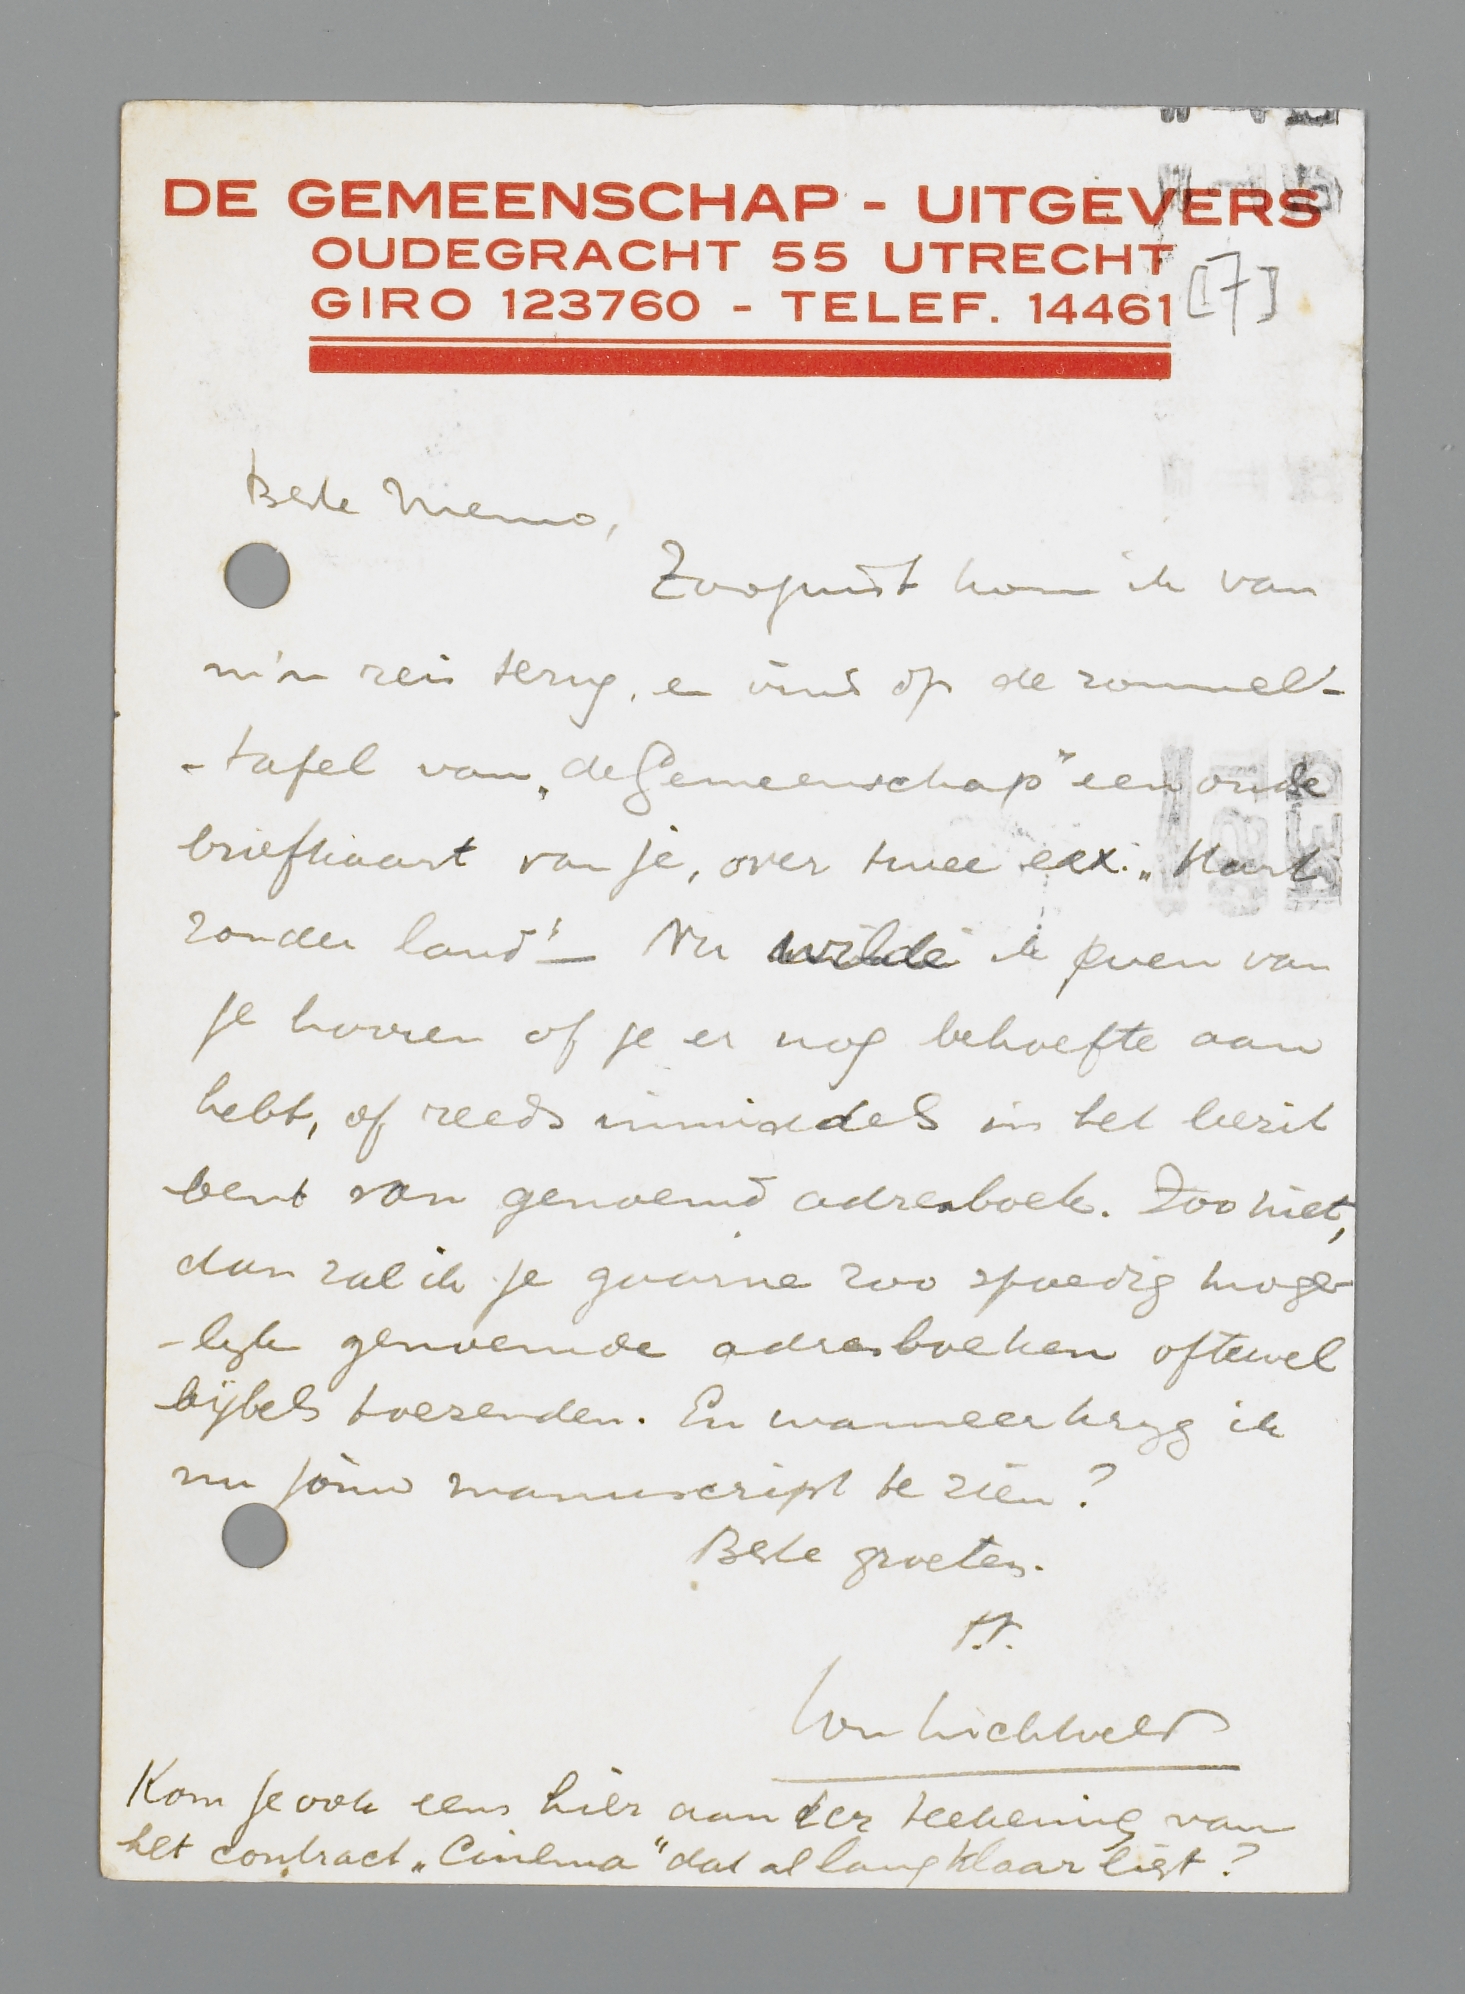 DE GEMEENSCHAP - UITGEVERS
OUDEGRACHT 55 UTRECHT
GIRO 123760 - TELEF. 14461
[7]
Beste Menno,
Zoojuist kom ik van
m'n reis terug, en vind op de rommel-
-tafel van „de Gemeenschap" een oude
briefkaart van je, over twee exx. „Hart
zonder land" — Nu wilde ik even van
je hooren of je er nog behoefte aan
hebt, of reeds inmiddels in het bezit
bent van genoemd adresboek. Zoo niet,
dan zal ik je gaarne zoo spoedig moge-
-lijk genoemde adresboeken oftewel
bijbels toezenden. En wanneer krijg ik
nu jouw manuscript te zien?
Beste groeten.
t.t.
Lou Lichtveld
Kom je ook eens hier aan ter teekening van
het contract „Cinema" dat al lang klaar ligt?